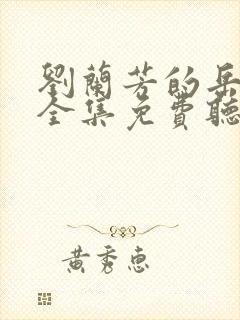 劉蘭芳的岳
全集免費聽
黃秀惠